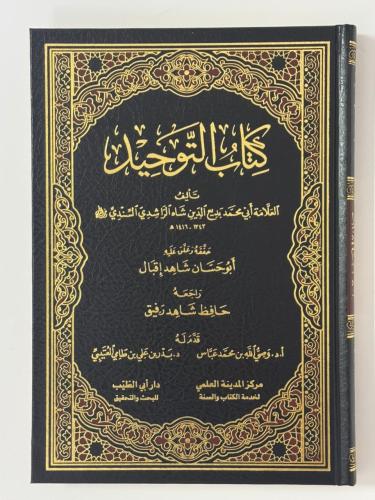 كِتَابُ التَّوْحِيدِ
تأليف
العلامة أبي محمد بديع الدين شاه الراشدي السندي رحمه الله
١٣٤٣ - ١٤١٦ هـ
حققه وعلق عليه
أبو حسان شاهد إقبال
راجعه
حافظ شاهد رفيق
قدم له
أ.د. وصي الله بن محمد عباس د. بدر بن علي بن طامي العتيبي
مركز المدينة العلمي دار أبي الطيب
لخدمة الكتاب والسنة للبحث والتحقيق